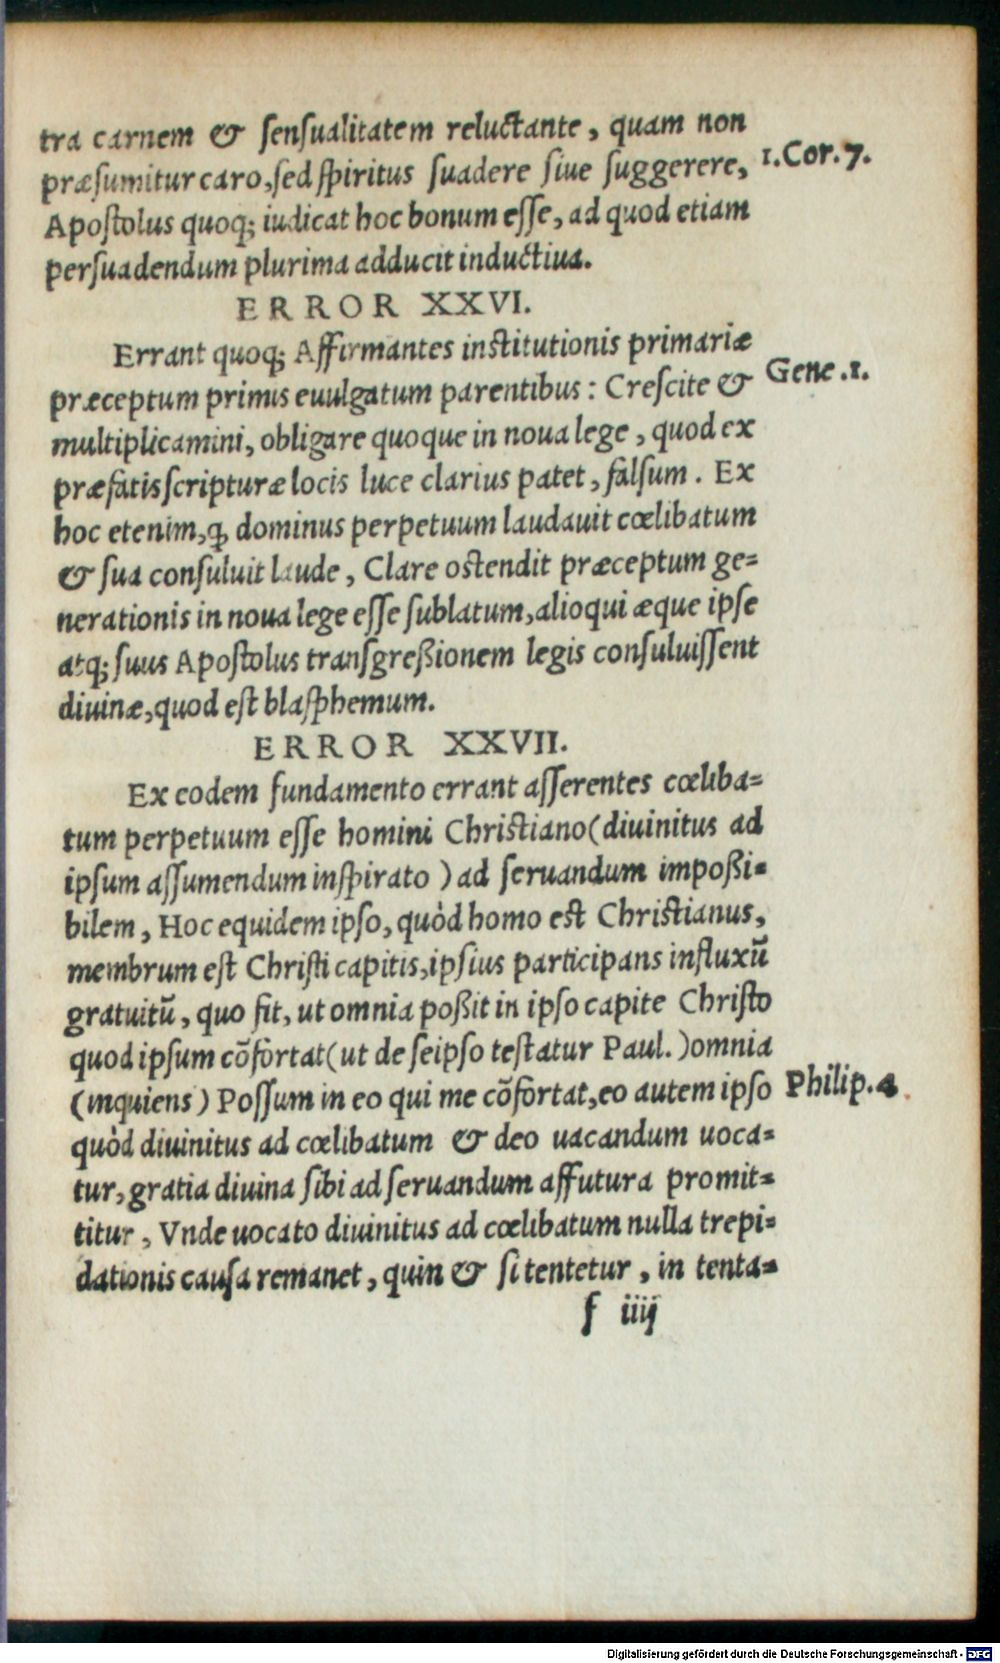 tra carnem & ſenſualitatem reluctante, quam non
præſumitur caro, ſed ſpiritus ſuadere ſiue ſuggerere,
1.Cor.7.
Apoſtolus quoq; iudicat hoc bonum eſſe, ad quod etiam
perſuadendum plurima adducit inductiua.
ERROR XXVI.
Errant quoq; Affirmantes inſtitutionis primariæ
præceptum primis euulgatum parentibus: Creſcite &
Gene.1.
multiplicamini, obligare quoque in noua lege, quod ex
præfatis ſcripturæ locis luce clarius patet, falſum. Ex
hoc etenim, ꝙ dominus perpetuum laudauit cœlibatum
& ſua conſuluit laude, Clare oſtendit præceptum ge=
nerationis in noua lege eſſe ſublatum, alioqui æque ipſe
atq; ſuus Apoſtolus tranſgreßionem legis conſuluiſſent
diuinæ, quod eſt blaſphemum.
ERROR XXVII.
Ex eodem fundamento errant aſſerentes cœliba=
tum perpetuum eſſe homini Chriſtiano (diuinitus ad
ipſum aſſumendum inſpirato) ad ſeruandum impoßi=
bilem, Hoc equidem ipſo, quòd homo eſt Chriſtianus,
membrum eſt Chriſti capitis, ipſius participans influxũ
gratuitũ, quo fit, ut omnia poßit in ipſo capite Chriſto
quod ipſum cõfortat (ut de ſeipſo teſtatur Paul.) omnia
(inquiens) Poſſum in eo qui me cõfortat, eo autem ipſo
Philip.4.
quòd diuinitus ad cœlibatum & deo uacandum uoca=
tur, gratia diuina ſibi ad ſeruandum affutura promit=
titur, Vnde uocato diuinitus ad cœlibatum nulla trepi=
dationis cauſa remanet, quin & ſi tentetur, in tenta=
f iiij
Digitalisierung gefördert durch die Deutsche Forschungsgemeinschaft - DFG